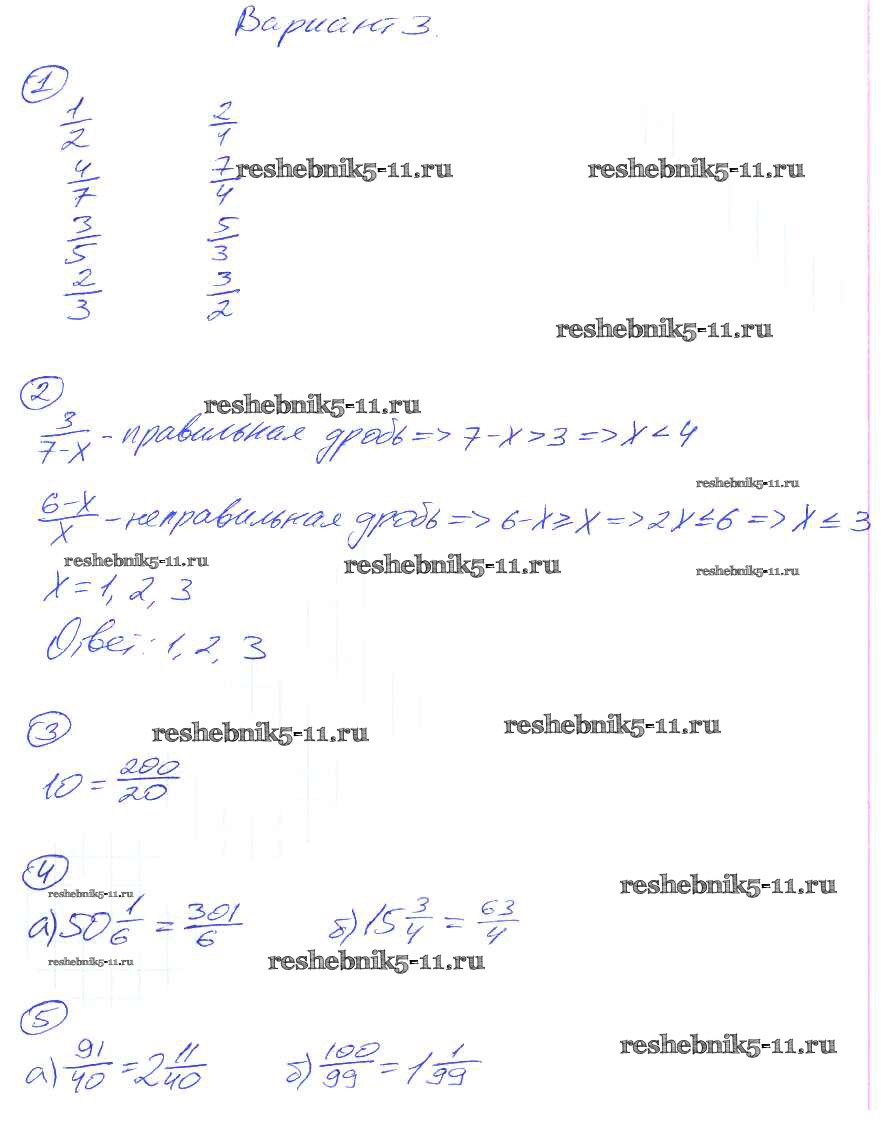 Вариант 3.
1
1/2 2/1
reshebnik5-11.ru reshebnik5-11.ru
4/7 7/4
3/5 5/3
2/3 3/2
reshebnik5-11.ru
2
reshebnik5-11.ru
3/(7-x) - правильная дробь => 7-x>3 => x<4
reshebnik5-11.ru
(6-x)/x - неправильная дробь => 6-x≥x => 2x≤6 => x≤3
reshebnik5-11.ru reshebnik5-11.ru reshebnik5-11.ru
x=1, 2, 3
Ответ: 1, 2, 3
3
reshebnik5-11.ru reshebnik5-11.ru
10 = 200/20
4
reshebnik5-11.ru reshebnik5-11.ru
а) 50 1/6 = 301/6 б) 15 3/4 = 63/4
reshebnik5-11.ru reshebnik5-11.ru
5
reshebnik5-11.ru
а) 91/40 = 2 11/40 б) 100/99 = 1 1/99